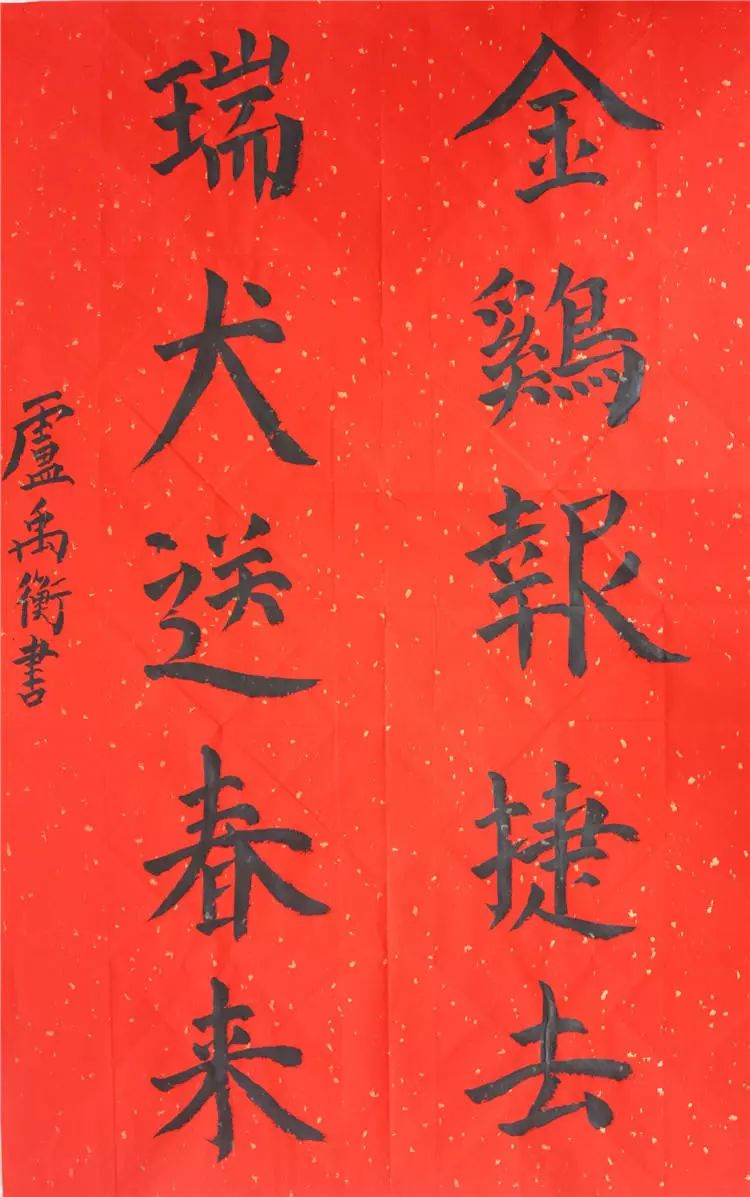 金鷄報捷去
瑞犬送春来
盧禹衡書